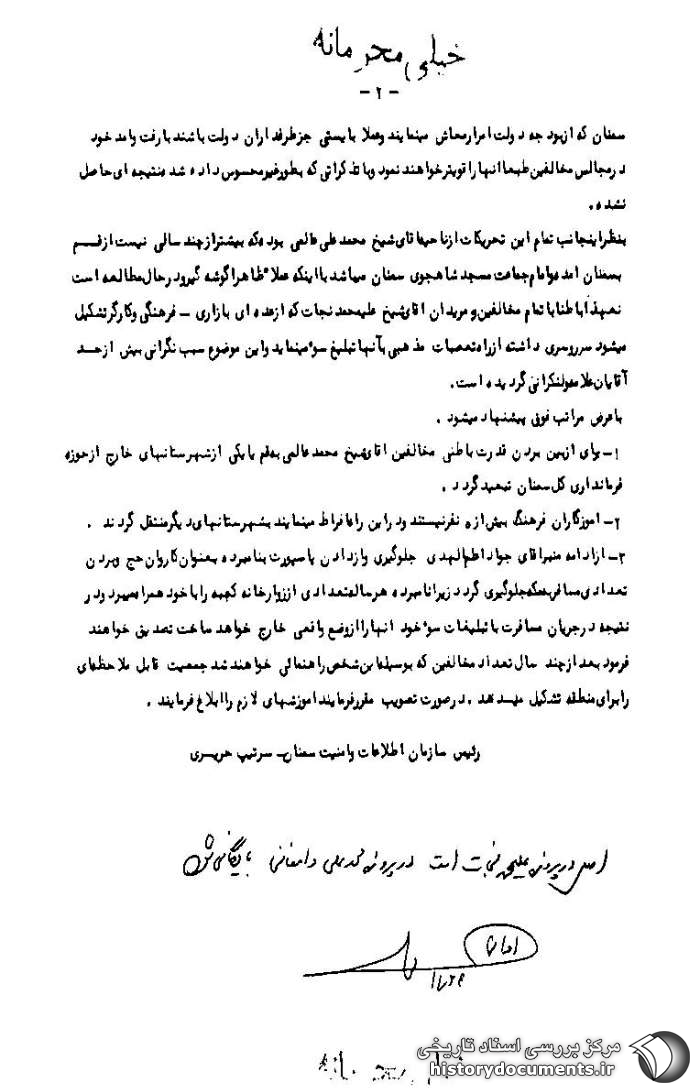 خیلی محرمانه
- ۲ -
سمنان که ازبودجه دولت امرارمعاش مینمایند وعملا بایستی جزطرفداران دولت باشند بارفت وامد خود
درمجالس مخالفین طبعا انها راقویترخواهند نمود وباتذکراتی که بطورغیرمحسوس داده شد ه نتیجه ای حاصل
نشده .
بنظراینجانب تمام این تحریکات ازناحیه اقای شیخ محمد علی عالمی بوده که بیشترازچند سالی نیست ازقم
بسمنان امده وامام جماعت مسجد شاهجوی سمنان میباشد بااینکه عملا ظاهرا گوشه گیرودرحال مطالعه است
معهذا باطنا باتمام مخالفین ومریدان اقای شیخ علیمحمد نجات که ازعده ای بازاری - فرهنگی وکارگرتشکیل
میشود سروسری داشته ازراه تعصبات مذهبی بآنها تبلیغ سوء مینماید واین موضوع سبب نگرانی بیش ازحد
آقایان گردیده است.
باعرض مراتب فوق پیشنهاد میشود .
۱- برای ازبین بردن قدرت باطنی مخالفین اقای شیخ محمد عالمی بقم یا یکی ازشهرستانهای خارج ازحوزه
فرمانداری کل سمنان تبعید گردد .
۲- اموزگاران فرهنگ بیش از نفرنیستند ودراین راه افراط مینمایند بشهرستانهای دیگرمنتقل گردند .
۳- ازادامه منبراقای جواد اطم الهدی جلوگیری وازدادن پاسپورت بنامبرده بعنوان کاروان حج وبردن
تعدادی مسافربمکه جلوگیری گردد زیرانامبرده هرساله تعدادی اززوارخانه کعبه راباخود همراه میبرد ودر
نتیجه درجریان مسافرت با تبلیغات سوء خود انها راازوضع واقعی خارج خواهد ساخت تصدیق خواهند
فرمود بعد ازچند سال تعداد مخالفین که بوسیله این شخص راهنمائی خواهند شد جمعیت قابل ملاحظه ای
رابرای منطقه تشکیل میدهد . درصورت تصویب مقررفرمایند اموزشهای لازم راابلاغ فرمایند .
رئیس سازمان اطلاعات وامنیت سمنان- سرتیپ حریری
اصل در پرونده علیمحمد نجات است در پرونده محمد علی دامغانی بایگانی شود
خیلی محرمانه
مرکز بررسی اسناد تاریخی
historydocuments.ir